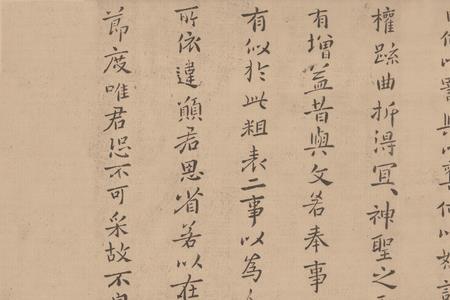 權疏曲折得宜、神聖之
有增益昔與文若奉事
有似於此粗表二事以為
所依違願君思省若以在
節度唯君恐不可采故不